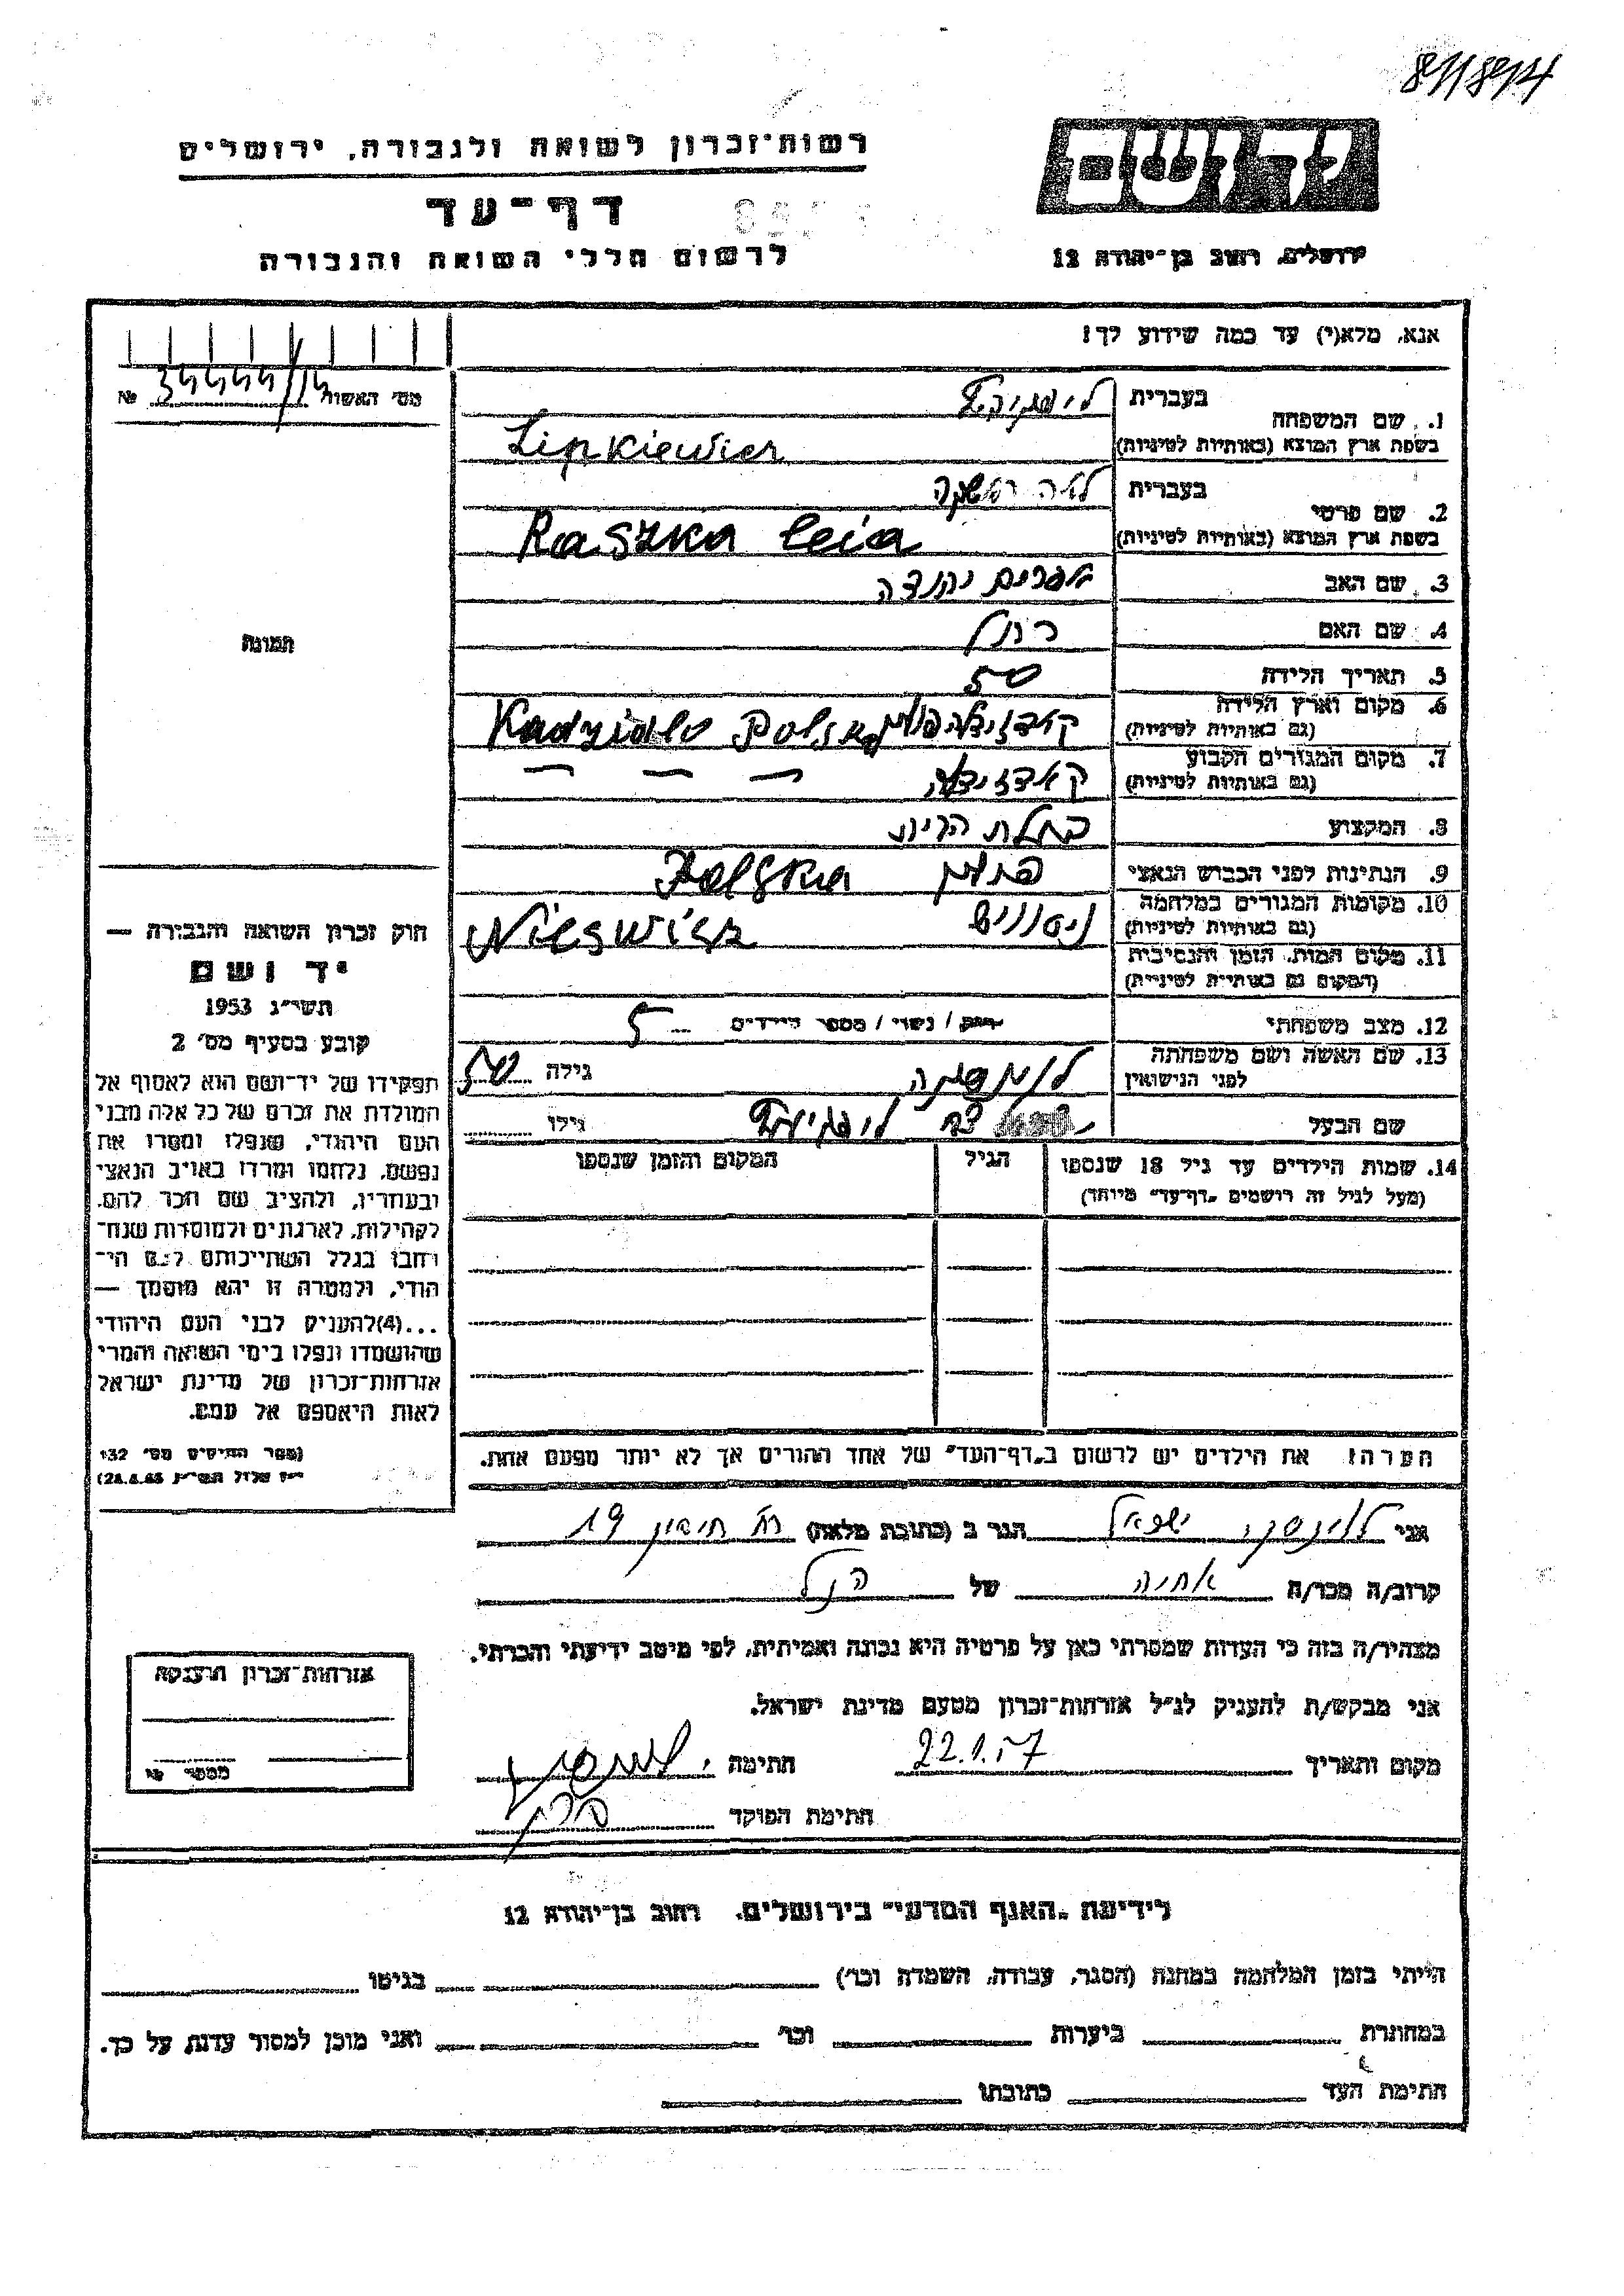 811894
רשות־זכרון לשואה ולגבורה, ירושלים
יד ושם
דף־עד
לרשום חללי השואה והגבורה
ירושלים, רחוב בן־יהודה 12
אנא, מלא(י) עד כמה שידוע לך!
מס׳ האשות №
1. שם המשפחה
בעברית
בשפת ארץ המוצא (באותיות לטיניות) Lipkiewicz
2. שם פרטי
בעברית לאה ראשקה
בשפת ארץ המוצא (באותיות לטיניות) Raszka Leia
3. שם האב אפרים יהודה
4. שם האם רחל
5. תאריך הלידה 50
6. מקום וארץ הלידה (גם באותיות לטיניות) Kadzidlo Polska
7. מקום המגורים הקבוע (גם באותיות לטיניות) — — —
8. המקצוע בעלת הבית
9. הנתינות לפני הכבוש הנאצי פולין Polska
10. מקומות המגורים במלחמה (גם באותיות לטיניות) Nieswicz
11. מקום המות, הזמן והנסיבות
(המקום גם באותיות לטיניות)
12. מצב משפחתי רווק / נשוי / מספר הילדים 5
13. שם האשה ושם משפחתה לפני הנישואין גילה 50
שם הבעל גילו
14. שמות הילדים עד גיל 18 שנספו
(מעל לגיל זה רושמים „דף־עד” מיוחד)
הגיל
המקום והזמן שנספו
הערה: את הילדים יש לרשום ב„דף־העד” של אחד ההורים אך לא יותר מפעם אחת.
תמונה
חוק זכרון השואה והגבורה —
יד ושם
תשי״ג 1953
קובע בסעיף מס׳ 2
תפקידו של יד־ושם הוא לאסוף אל
המולדת את זכרם של כל אלה מבני
העם היהודי, שנפלו ומסרו את
נפשם, נלחמו ומרדו באויב הנאצי
ובעוזריו, ולהציב שם וזכר להם,
לקהילות, לארגונים ולמוסדות שנח־
רבו בגלל השתייכותם לעם הי־
הודי, ולמטרה זו יהא מוסמך —
...(4)להעניק לבני העם היהודי
שהושמדו ונפלו בימי השואה והמרי
אזרחות־זכרון של מדינת ישראל
לאות היאספם אל עמם.
(ספר החוקים מס׳ 132
אני ישראל הגר ב (כתובת מלאה) 19
קרוב/ה מכר/ה של הנ״ל
מצהיר/ה בזה כי העדות שמסרתי כאן על פרטיה היא נכונה ואמיתית, לפי מיטב ידיעתי והכרתי.
אני מבקש/ת להעניק לנ״ל אזרחות־זכרון מטעם מדינת ישראל.
מקום ותאריך 22.1.57 חתימה
חתימת הפוקד
אזרחות־זכרון הוענקה
לידיעת „האגף המדעי” בירושלים, רחוב בן־יהודה 12
הייתי בזמן המלחמה במחנה (הסגר, עבודה, השמדה וכו׳) בגיטו
במחתרת ביערות וכו׳ ואני מוכן למסור עדות על כך.
חתימת העד כתובתו